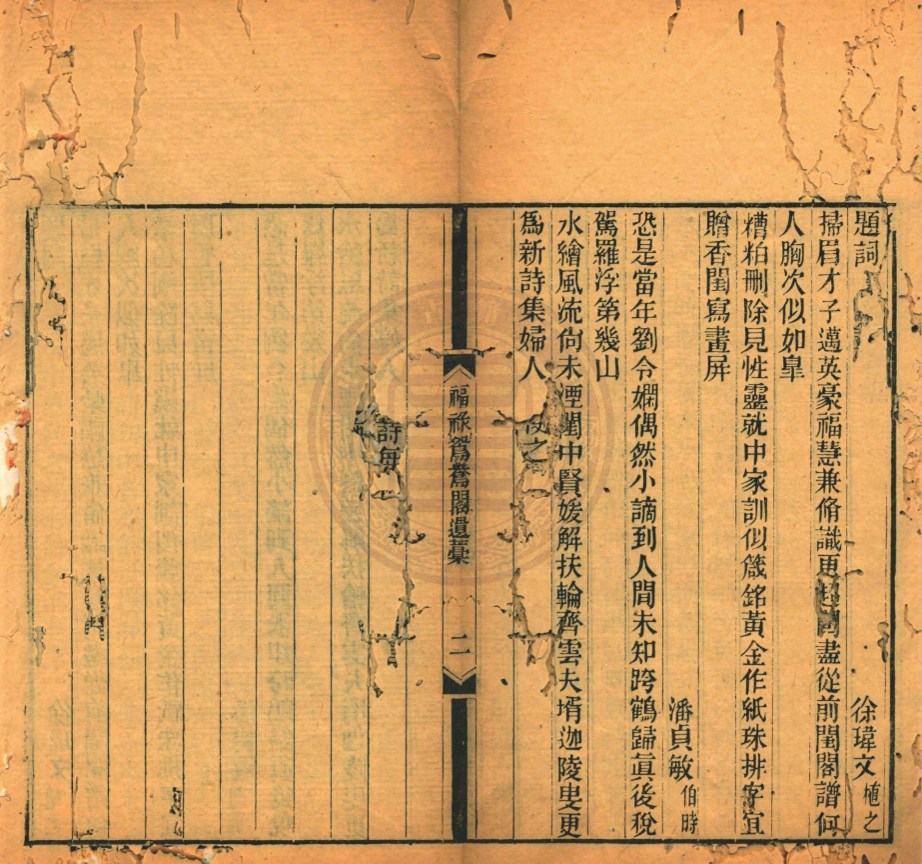 題詞　徐瑋文植之
掃眉才子邁英豪福慧兼脩識更盡從前閨閣譜何
人胸次似如皐
糟粕刪除見性靈就中家訓似箴銘黃金作紙珠排字宜
贈香閨寫畫屏
潘貞敏伯時
恐是當年劉令嫻偶然小謫到人間未知跨鶴歸眞後稅
駕羅浮第幾山
水繪風流尙未湮閨中賢媛解扶輪齊雲夫壻迦陵叟更
爲新詩集婦人
福祿鴛鴦閣遺藁　二